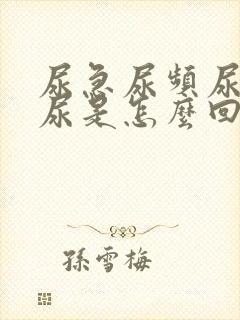 尿急尿頻尿
尿是怎麼回
孫雪梅